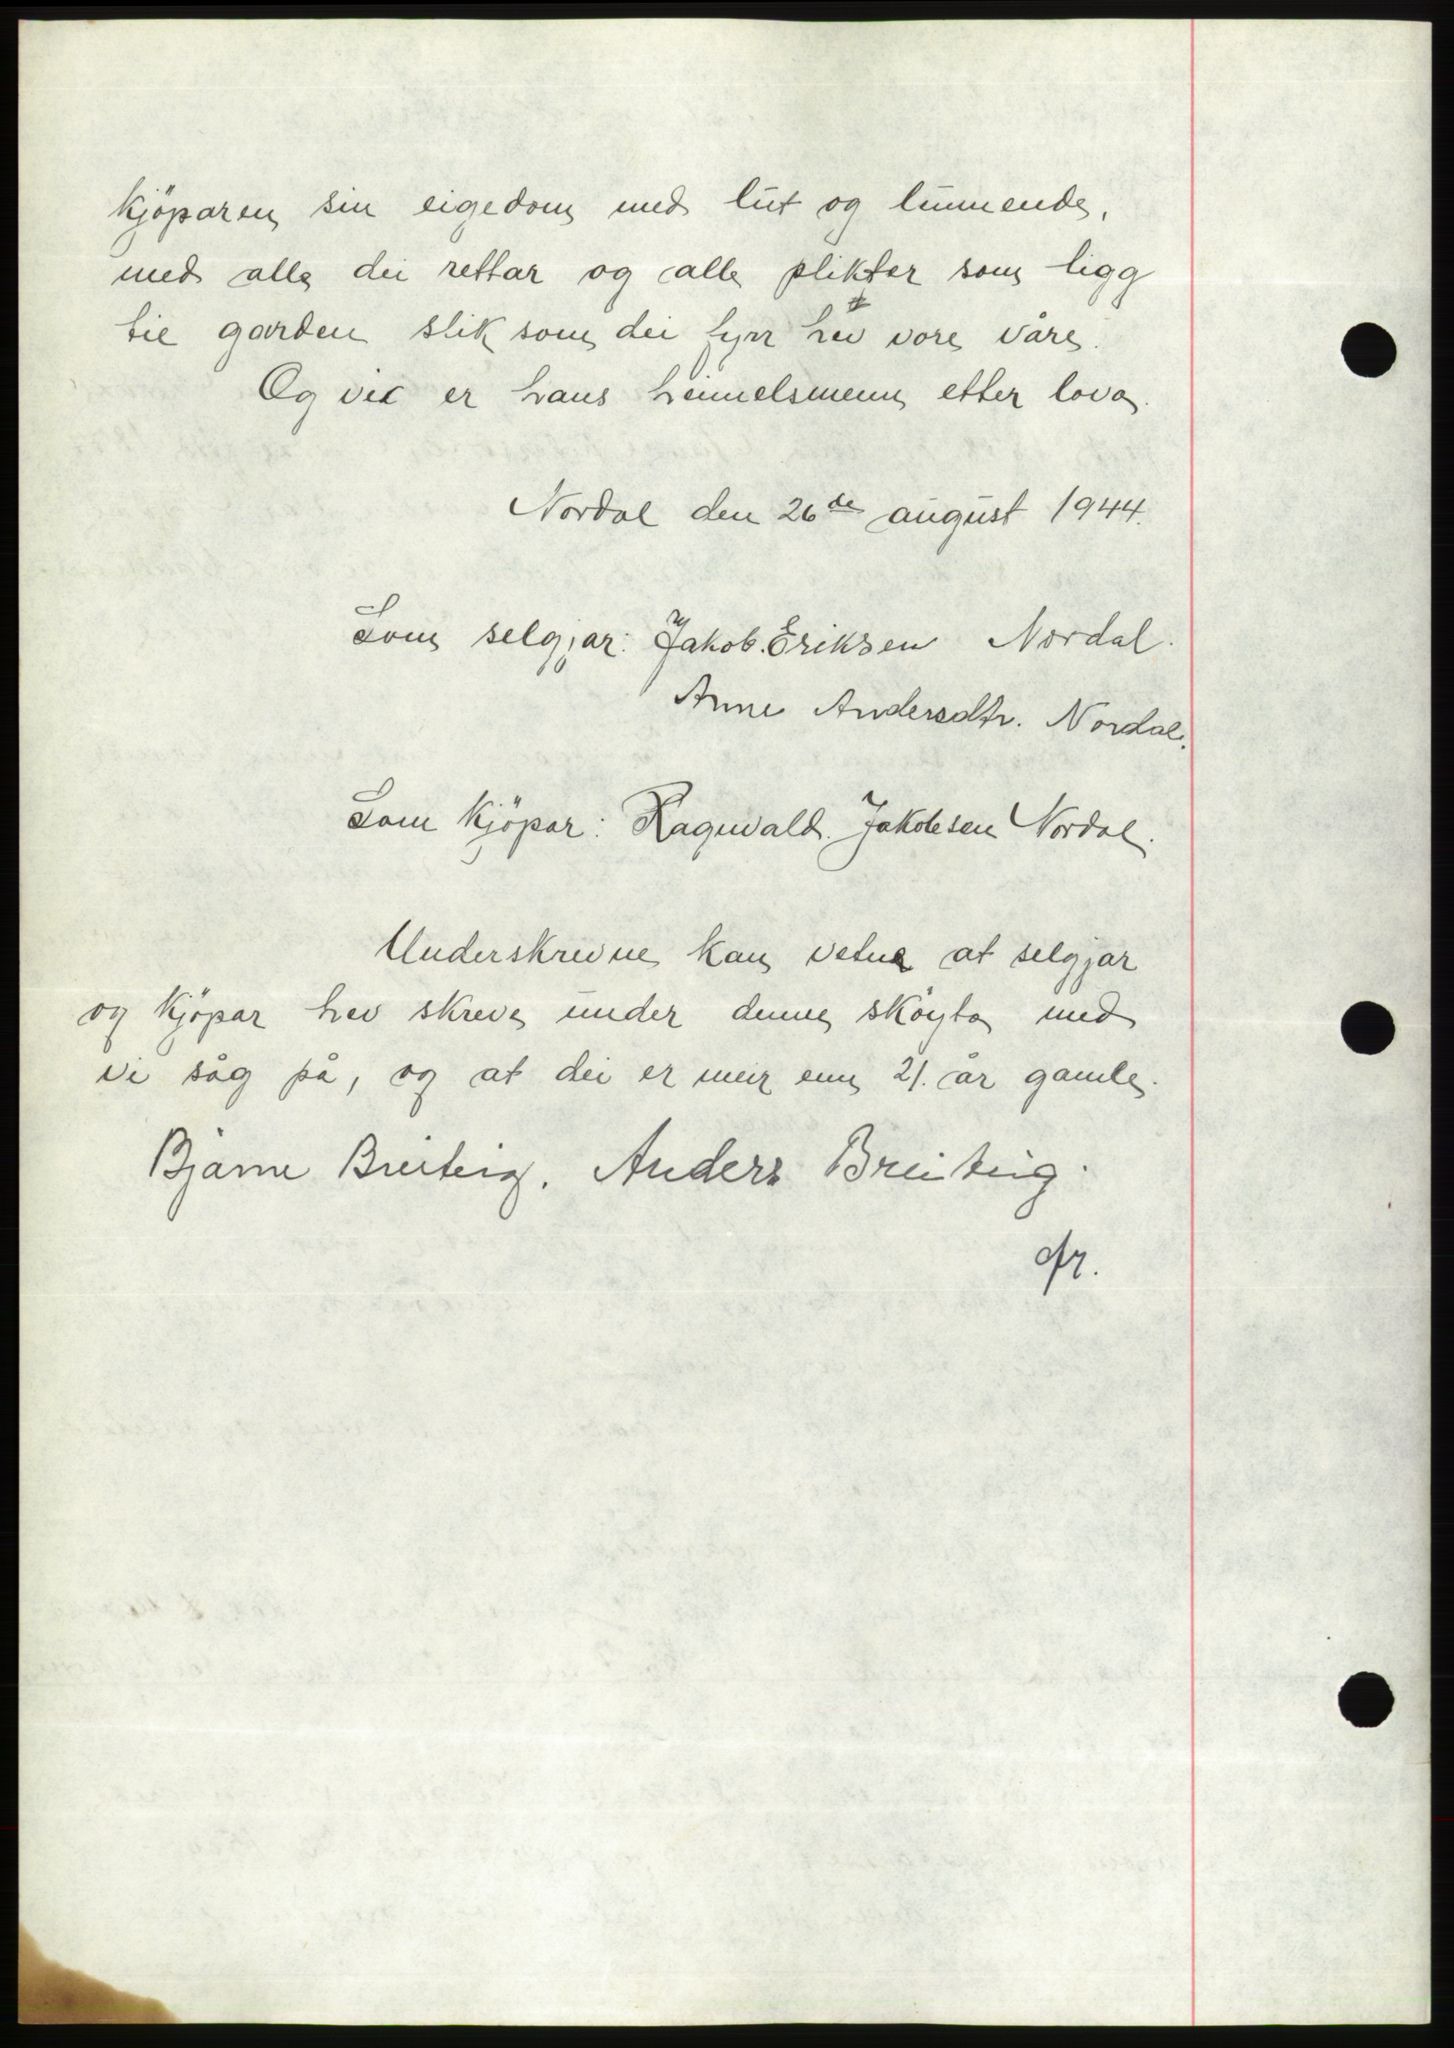 kjöparen sin eigedom med lut og lunnende,
med alle dei rettar og alle plikter som ligg
til garden slik som dei fyrr hev vore våre.
Og vil er hans heimelsmenn etter lova.
Nordal den 26de august 1944.
Som selgjar: Jakob. Eriksen Nordal.
Anne Andersdtr. Nordal.
Som kjöpar: Ragnvald. Jakobsen Nordal.
Underskrevne kan vetna at selgjar
og kjöpar hev skreve under denne sköyta med
vi såg på, og at dei er meir enn 21. år gamle.
Bjarne Breiteig. Anders Breiteig.